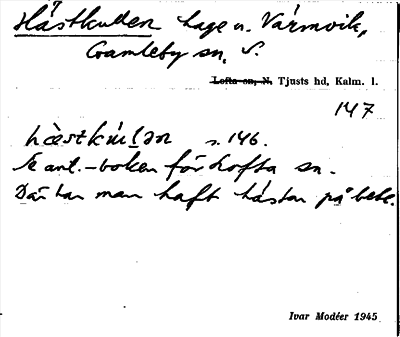 Hästkullen hage u. Värmvik,
Gamleby sn. S.
Lofta sn, N. Tjusts hd, Kalm. l.
147
hæ̀stkúl̥ən s. 146.
Se ant.-boken för Lofta sn.
Där har man haft hästar på bete.
Ivar Modéer 1945